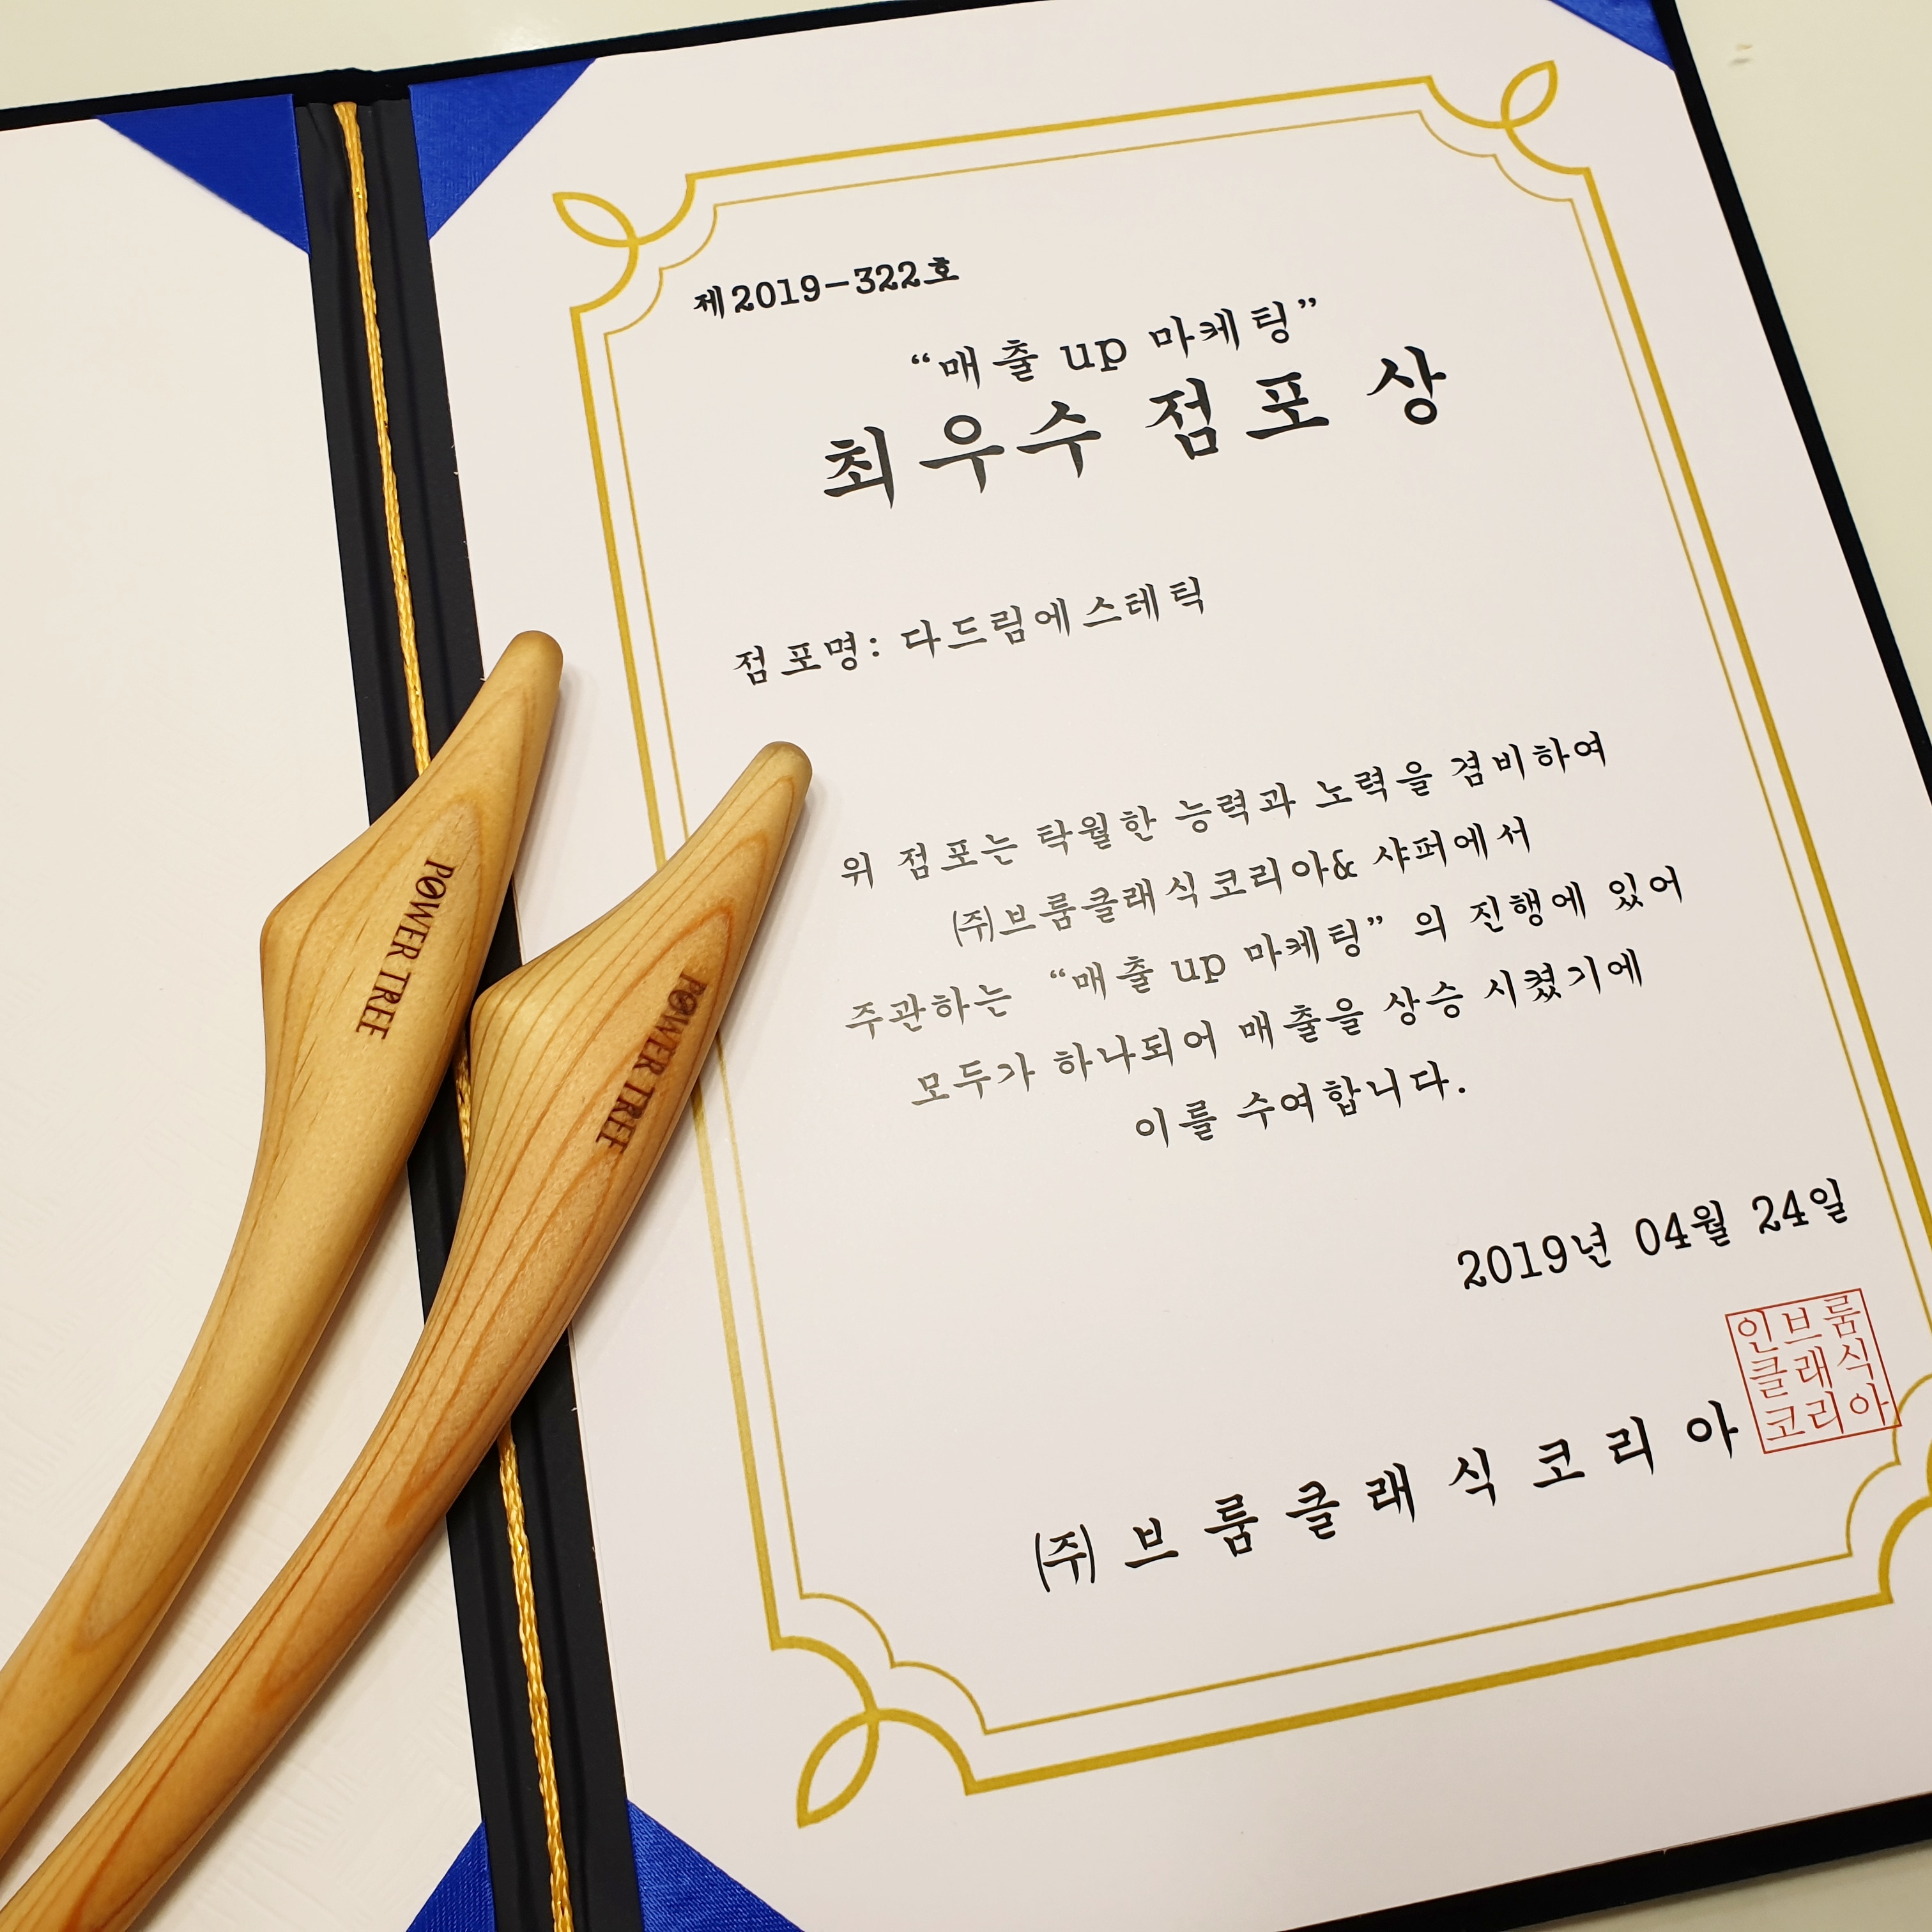 제2019-322호
“매출 up 마케팅”
최우수 점포 상
점포명: 다드림에스테틱
위 점포는 탁월한 능력과 노력을 겸비하여
㈜브룸클래식코리아& 샤퍼에서
주관하는 “매출 up 마케팅” 의 진행에 있어
모두가 하나되어 매출을 상승 시켰기에
이를 수여합니다.
2019년 04월 24일
㈜브룸클래식코리아
인브룸
클래식
코리아
POWER TREE
POWER TREE